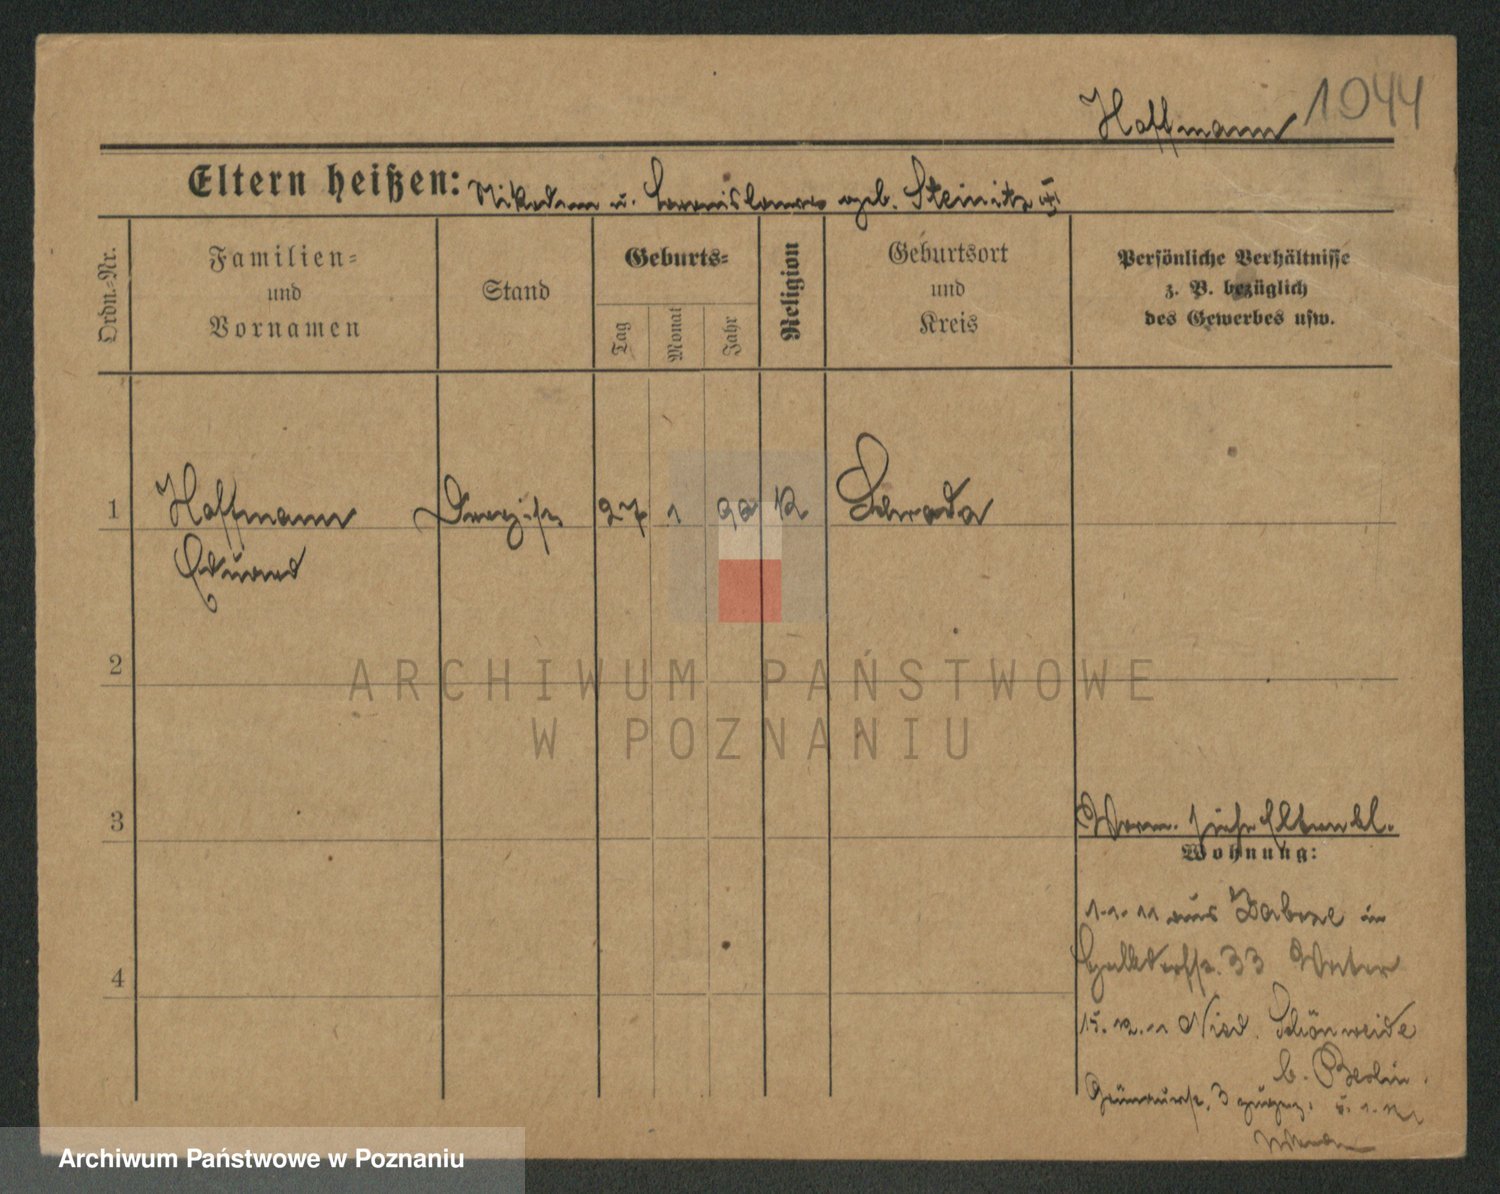 Hoffmann 1044
Eltern heißen: Nikodem u. geb. Steinitz
Ordn.-Nr.
Familien-
und
Vornamen
Stand
Geburts-
Tag
Monat
Jahr
Religion
Geburtsort
und
Kreis
Persönliche Verhältnisse
z. B. bezüglich
des Gewerbes usw.
1 Hoffmann 27 1 92 K Schroda
Eduard
2
3
4
Vorm. siehe Elternbl.
Wohnung:
1.1.11 aus Zabrze in
33 Vater
15.12.11 Nied. Schönweide
b. Berlin
3
ARCHIWUM PAŃSTWOWE
W POZNANIU
Archiwum Państwowe w Poznaniu